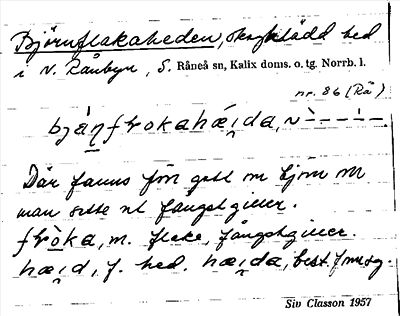 Björnflakaheden, skogklädd hed
i N. Rånbyn, S. Råneå sn, Kalix doms. o. tg. Norrb. l.
nr. 86 (Rå)
Där fanns förr gott om björn och
man satte ut fångstgiller.
m. flake, fångstgiller.
f. hed. best. form sg.
Siv Classon 1957